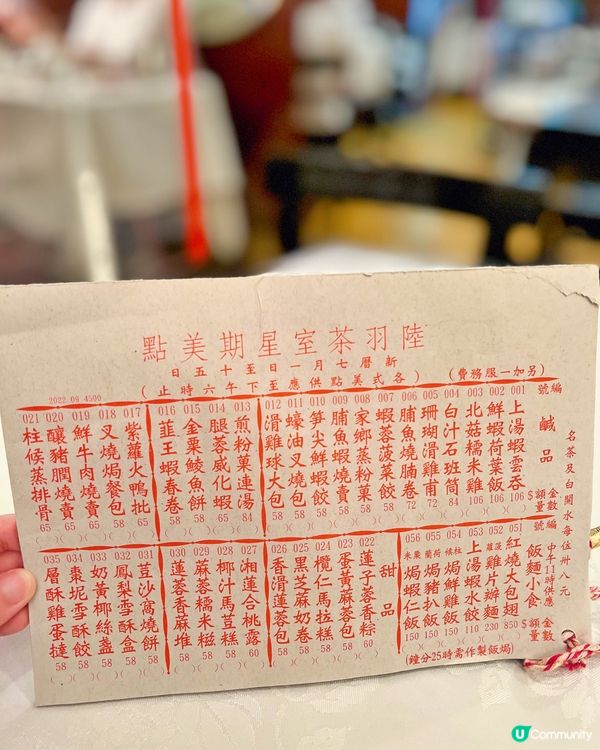 陸羽茶室星期美點
新曆七月一日至十五日
(各式美點供應至下午六時止)
(另加一服務費)
2022 09 4500
名茶及白開水每位卅八元
編號 鹹品 金額 數量
001 上湯蝦雲吞 106
002 鮮蝦荷葉飯 106
003 北菇糯米雞 106
004 白汁石斑筒 84
005 珊瑚滑雞甫 72
006 脯魚燒腩卷
007 蝦蓉菠菜餃 58
008 家鄉蒸粉果 58
009 脯魚蝦燒賣 58
010 筍尖鮮蝦餃 58
011 蠔油叉燒包 58
012 滑雞球大包 58
013 煎粉果連湯 84
014 腿蓉威化蝦 65
015 金粟鯪魚餅 58
016 韮王蝦春卷 58
017 紫蘿火鴨批 65
018 叉燒焗餐包 58
019 鮮牛肉燒賣 58
020 釀豬膶燒賣 65
021 柱侯蒸排骨 65
中午11時供應
編號 飯麵小食 金額 數量
051 紅燒大包翅 850
052 蘿菜雞片辦麵 230
053 上湯蝦水餃 110
054 柱候焗鮮雞飯 150
055 荷蘭焗豬扒飯 150
056 粟米焗蝦仁飯 150
(焗飯製作需時25分鐘)
甜品
022 蓮子蓉香粽 60
023 蛋黃麻蓉包 58
024 欖仁馬拉糕 58
025 黑芝麻奶卷 58
026 香滑蓮蓉包 58
027 湘蓮合桃露 60
028 椰汁馬荳糕 58
029 麻蓉糯米糍 58
030 蓮蓉香麻堆 58
031 荳沙窩燒餅 58
032 鳳梨雪酥盒 58
033 奶黃椰絲盞 58
034 棗坭雪酥餃 58
035 層酥雞蛋撻 58
U Community